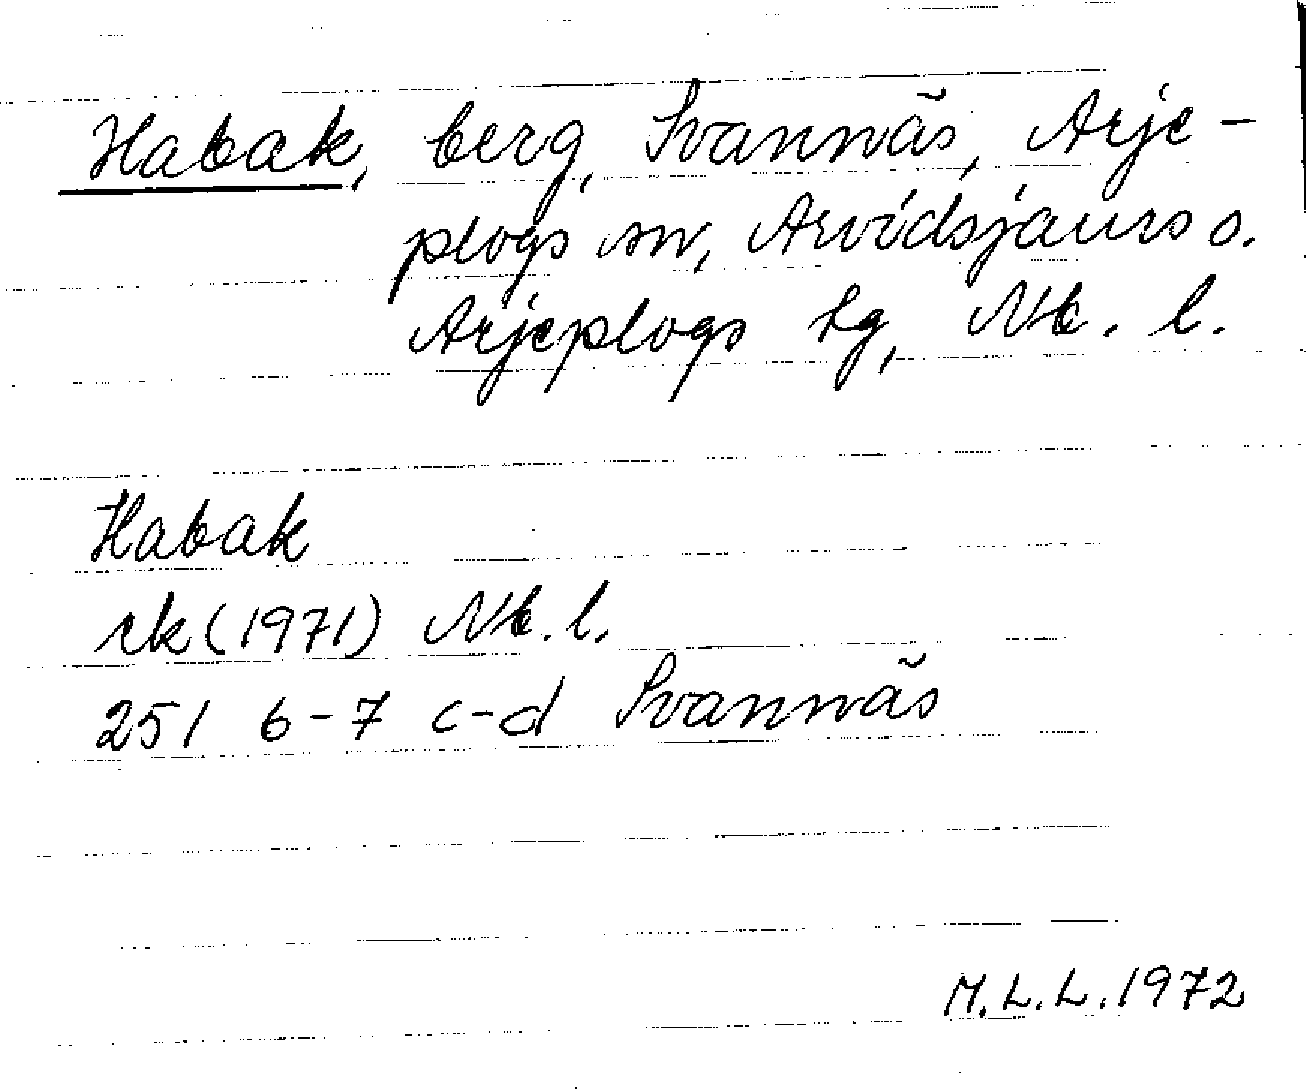 Habak, berg, Svannäs, Arje-
plogs sn, Arvidsjaurs o.
Arjeplogs lg, Nb. l.
Habak
rk (1971) Nb. l.
251 6-7 c-d Svannäs
M.L.L. 1972